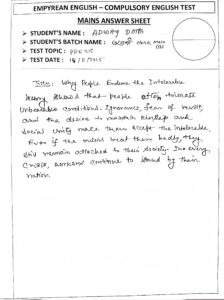 EMPYREAN ENGLISH – COMPULSORY ENGLISH TEST
MAINS ANSWER SHEET
➢ STUDENT'S NAME : ADWAY DATTA
➢ STUDENT'S BATCH NAME :
➢ TEST TOPIC : PRECIS
➢ TEST DATE : 18/8/2025
Title: Why People Endure the Intolerable
History shows that people often tolerate
unbearable conditions. Ignorance, fear of revolt,
and the desire to maintain kinship and
social unity make them accept the intolerable.
Even if the rulers treat them badly, they
still remain attached to their society. In every
crisis, workers continue to stand by their
nation.